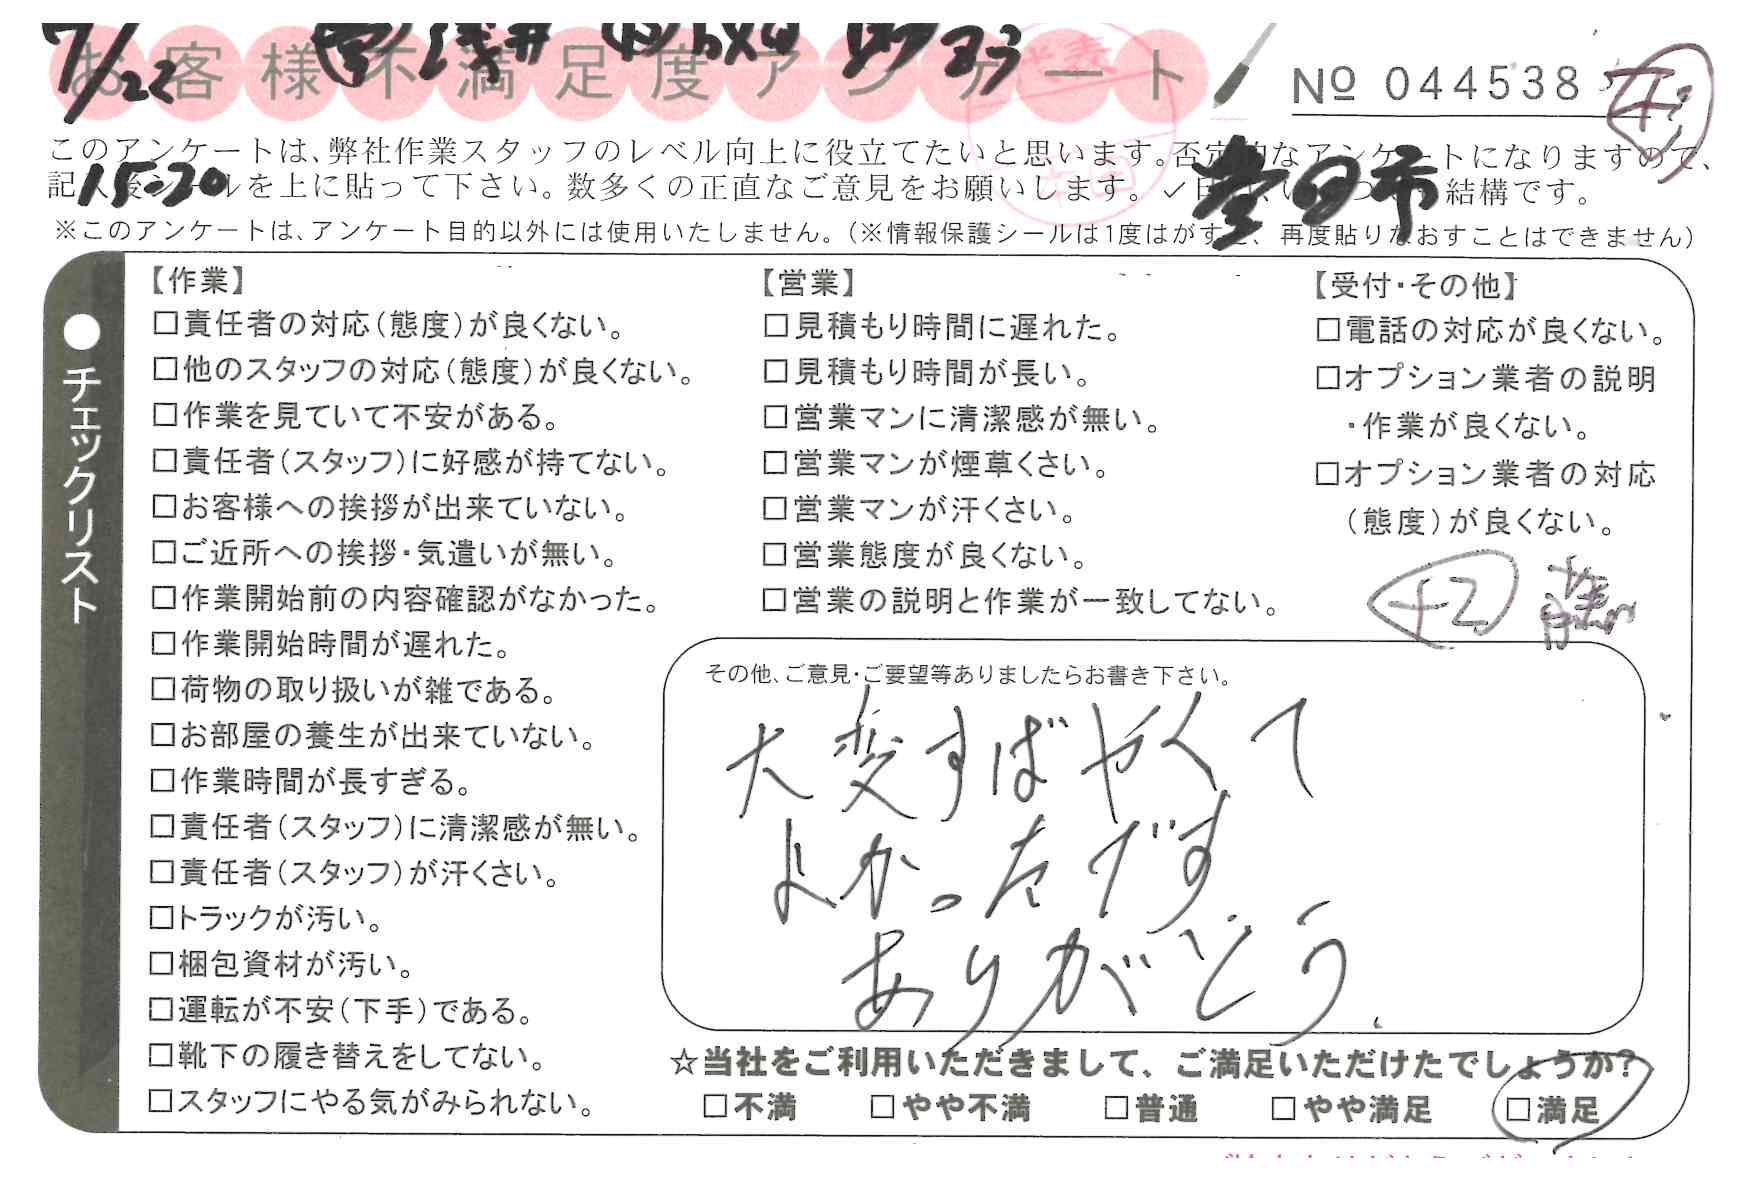 7/22
お客様不満足度アンケート
No 044538
このアンケートは、弊社作業スタッフのレベル向上に役立てたいと思います。否定的なアンケートになりますので、
15:30
記入後シールを上に貼って下さい。数多くの正直なご意見をお願いします。
結構です。
豊田市
※このアンケートは、アンケート目的以外には使用いたしません。(※情報保護シールは1度はがすと、再度貼りなおすことはできません)
●チェックリスト
【作業】
□責任者の対応(態度)が良くない。
□他のスタッフの対応(態度)が良くない。
□作業を見ていて不安がある。
□責任者(スタッフ)に好感が持てない。
□お客様への挨拶が出来ていない。
□ご近所への挨拶・気遣いが無い。
□作業開始前の内容確認がなかった。
□作業開始時間が遅れた。
□荷物の取り扱いが雑である。
□お部屋の養生が出来ていない。
□作業時間が長すぎる。
□責任者(スタッフ)に清潔感が無い。
□責任者(スタッフ)が汗くさい。
□トラックが汚い。
□梱包資材が汚い。
□運転が不安(下手)である。
□靴下の履き替えをしてない。
□スタッフにやる気がみられない。
【営業】
□見積もり時間に遅れた。
□見積もり時間が長い。
□営業マンに清潔感が無い。
□営業マンが煙草くさい。
□営業マンが汗くさい。
□営業態度が良くない。
□営業の説明と作業が一致してない。
【受付・その他】
□電話の対応が良くない。
□オプション業者の説明
・作業が良くない。
□オプション業者の対応
(態度)が良くない。
その他、ご意見・ご要望等ありましたらお書き下さい。
大変すばやくて
よかったです
ありがとう
☆当社をご利用いただきまして、ご満足いただけたでしょうか?
□不満 □やや不満 □普通 □やや満足 □満足